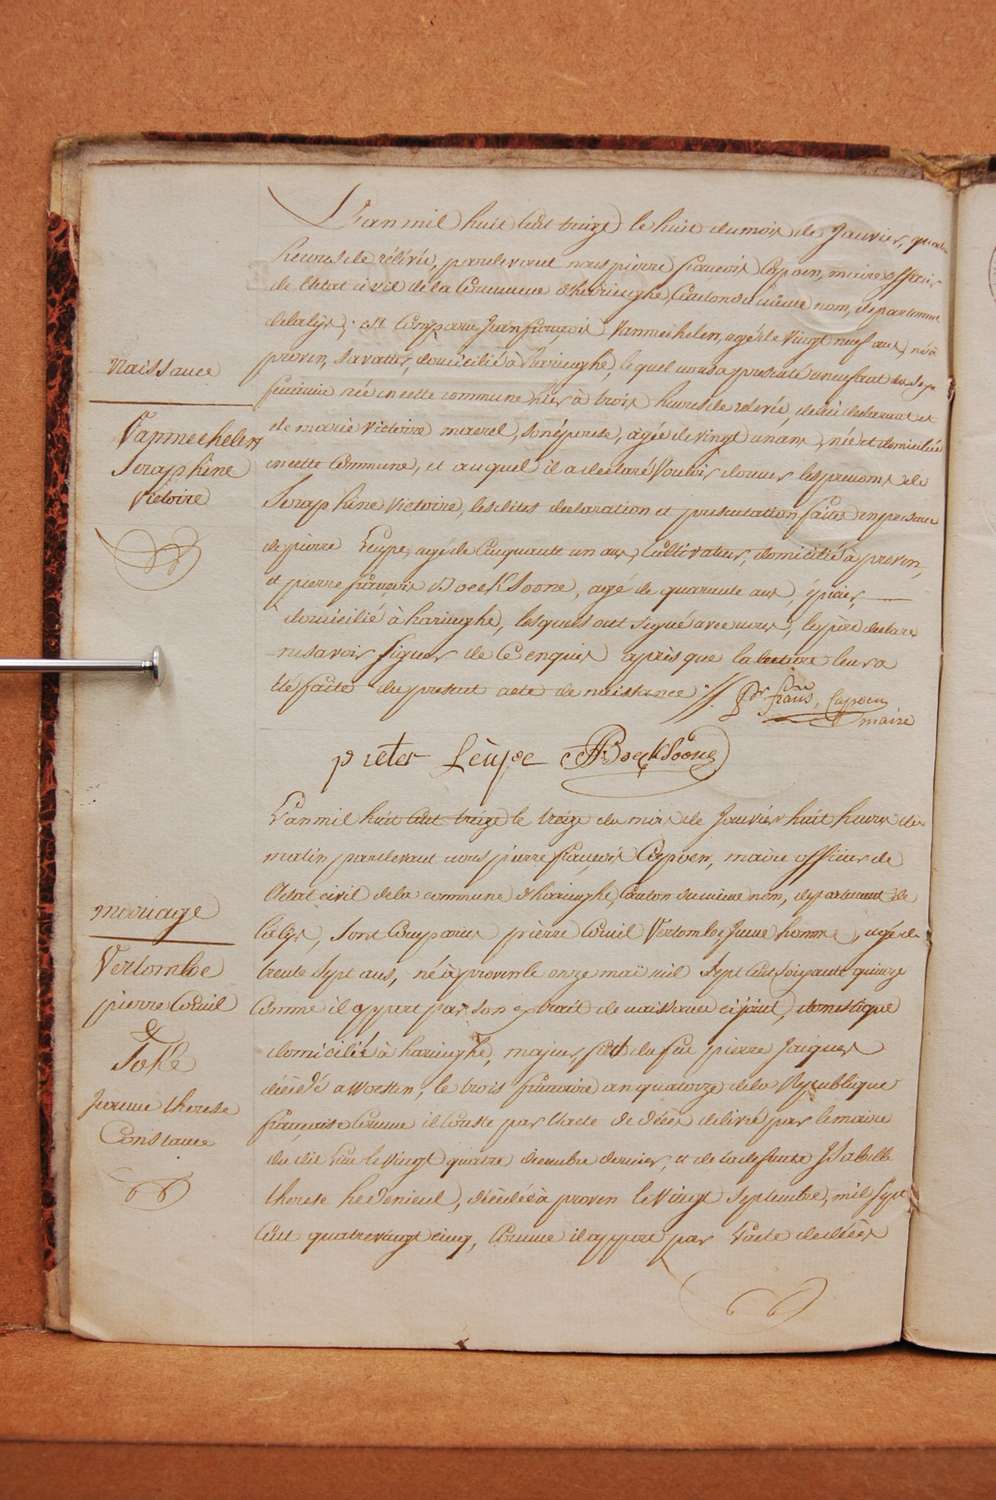 L'an mil huit cent treize le huit du mois de Janvier, quatre
heures de relévée, pardevant nous pierre françois Capoen, maire officier
de l'Etat civil de la Commune d'haringhe, Canton du même nom, departement
delalijs, est Comparu Jean françois Vanmechelen, agé de vingt neuf ans, né à
proven, savatier, domicilié à haringhe, lequel nous a presenté un enfant du sexe
feminin née en cette commune hier à trois heures de relevé, de lui declarant et
de marie victoire maerel, son épouse, agée de vingt un ans, née et domiciliée
en cette Commune, et auquel il a declaré vouloir donner les prenoms de
Seraphine Victoire, les dites declaration et presentation faites en presence
de pierre Leupe, agé de Cinquante un ans, Cultivateur, domicilié à proven,
et pierre françois Boecksoone, agé de quarante ans, épicier,
domicilié à haringhe, lesquels ont signé avec nous, le père declare
ne savoir signer de ce enquis après que la lecture leur a
été faite du present acte de naissance
P.re fran.s Capoen
maire
pieter Leùpe Boecksoone
Naissance
Vanmechelen
Seraphine
Victoire
L'an mil huit cent treize le treize du mois de Janvier huit heures de
matin pardevant nous pierre françois Capoen, maire officier de
l'état civil de la commune d'haringhe, Canton du même nom, departement de
la lijs, sont Comparus pierre Corneil Vertombe Jeune homme, agé de
trente sept ans, né à proven le onze mai mil sept cent soixante quinze
Comme il appert par son extrait de naissance ci joint, domestique
domicilié à haringhe, majeur fils du feu pierre Jacques
décédé a Worsten, le trois frimaire an quatorze de la Republique
française Comme il Conste par l'acte de décès délivré par le maire
du dit lieu le vingt quatre decembre dernier, et de la defunte Isabelle
therese hedenieul, décédée à proven le vingt Septembre, mil sept
Cent quatrevingt cinq, Comme il appert par l'acte de décès
mariage
Vertombe
pierre Corneil
&
Jeanne therese
Constance